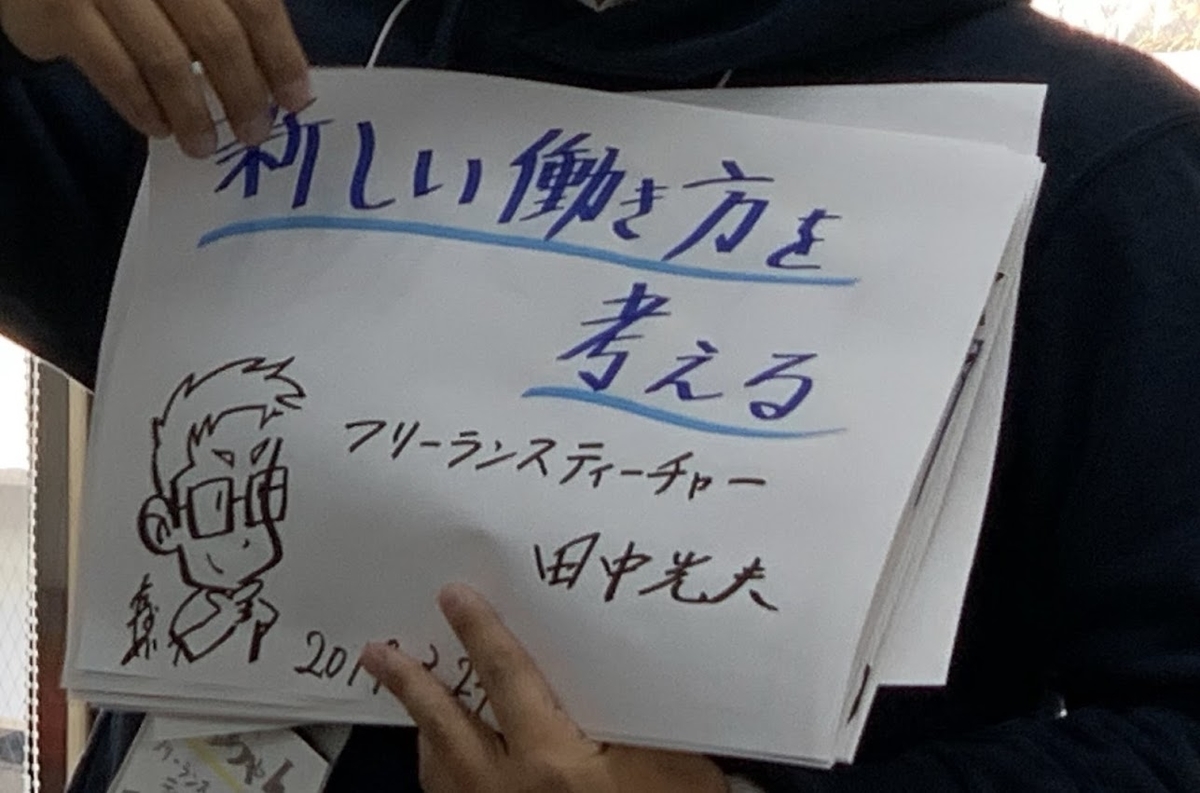 新しい働き方を
考える
フリーランスティーチャー
田中光夫